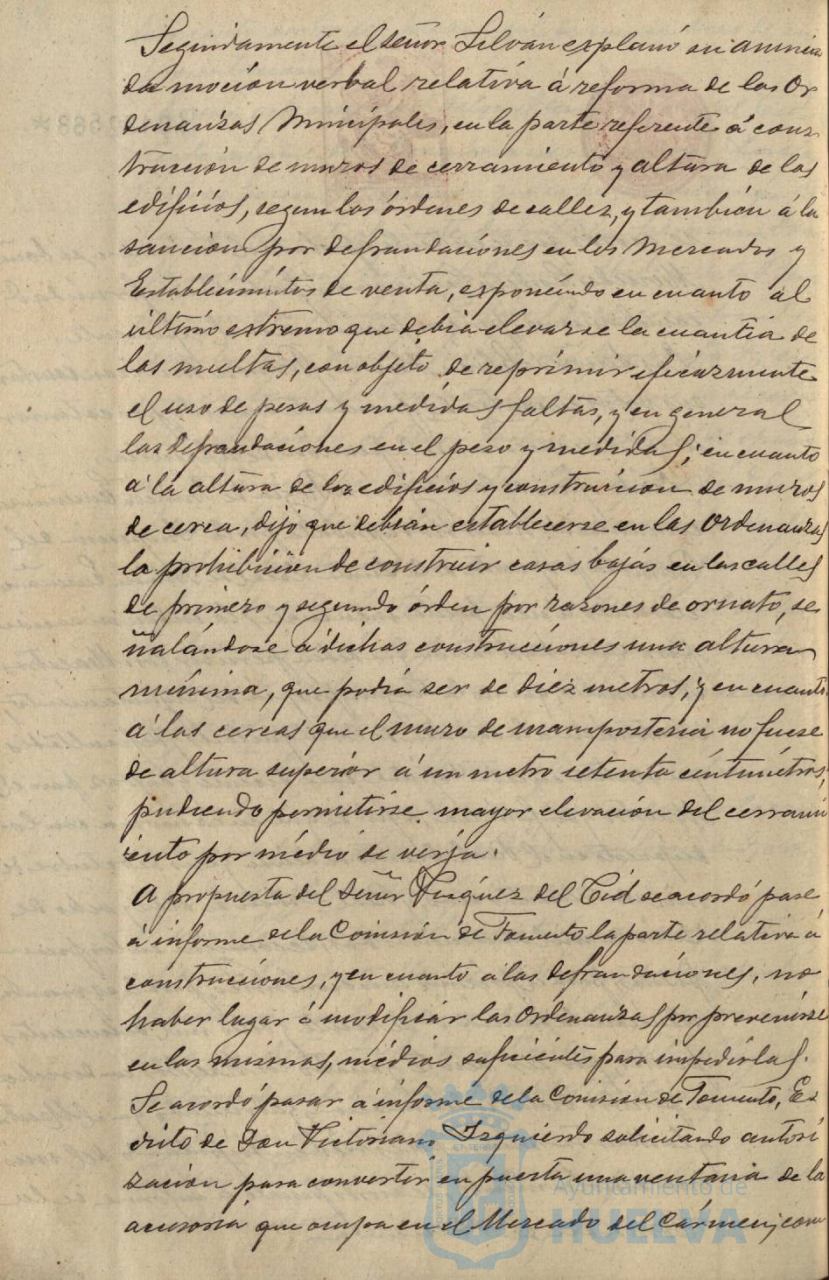 Seguidamente el señor Silván esplanó su anuncia
da moción verbal relativa á reforma de las Or
denanzas Municipales, en la parte referente á cons
trucción de muros de cerramiento y altura de los
edificios, segun los órdenes de calles, y también á la
sanción por defraudaciones en los Mercados y
Establecimientos de venta, esponiendo en cuanto al
último estremo que debia elevarse la cuantía de
las multas, con objeto de reprimir eficazmente
el uso de pesas y medidas faltas, y en general
las defraudaciones en el peso y medidas; en cuanto
á la altura de los edificios y construcción de muros
de cerca, dijo que debian establecerse en las Ordenanzas
la prohibición de construir casas bajas en las calles
de primero y segundo órden por razones de ornato, se
ñalándose á dichas construcciones una altura
mínima, que podría ser de diez metros, y en cuanto
á las cercas que el muro de mampostería no fuese
de altura superior á un metro setenta centímetros,
pudiendo permitirse mayor elevación del cerrami
ento por médio de verja.
A propuesta del Señor Vázquez del Cid se acordó pase
á informe de la Comisión de Fomento la parte relativa á
construcciones, y en cuanto á las defraudaciones, no
haber lugar á modificar las Ordenanzas por prevenirse
en las mismas, médios suficientes para impedirlas.
Se acordó pasar á informe de la Comisión de Fomento, Es
crito de Don Victoriano Izquierdo solicitando autori
zación para convertir en puerta una ventana de la
accesoria que ocupa en el Mercado del Cármen; como
Ayuntamiento de
HUELVA